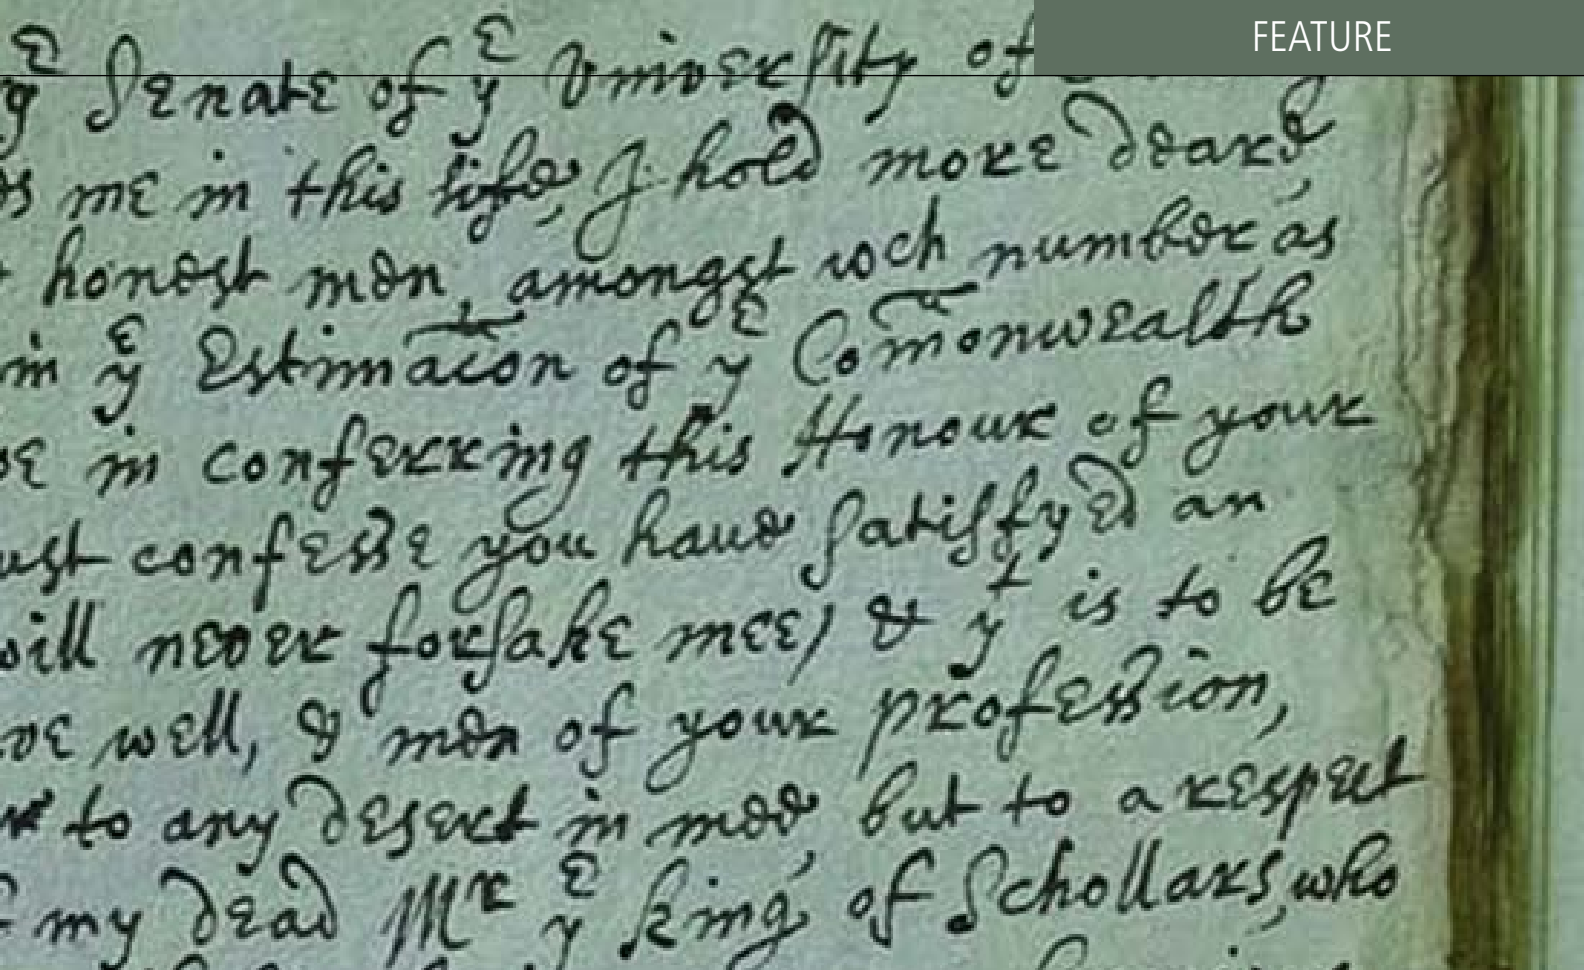 FEATURE
yᵉ Senate of yᵉ Vniversity of
me in this life, I hold more deare,
honest men, amongst wch number as
in yᵉ Estimac̄on of yᵉ Com̄onwealth
in conferring this Honour of your
confesse you haue satisfyed an
will never forsake mee) & yᵗ is to be
well, & men of your profession,
to any desert in mee, but to a respect
my dead Mʳ yᵉ king of Schollars, who